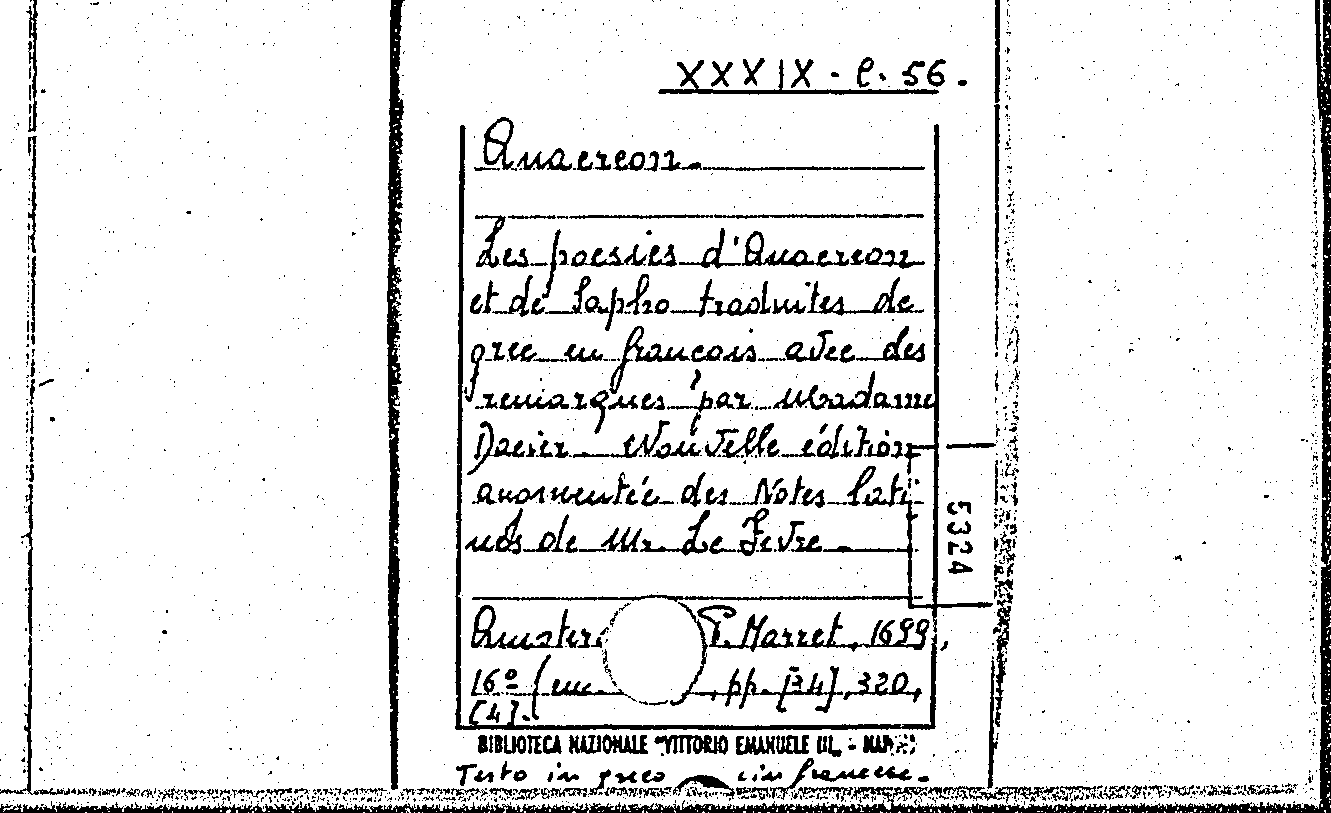 XXXIX - C. 56.
Anacreon.
Les poesies d'Anacreon
et de Sapho traduites de
grec en françois avec des
remarques par Madame
Dacier. Nouvelle édition
augmentée des Notes lati
nes de Mr. Le Fevre.
5324
P. Marret, 1699,
16º pp. [34], 320,
[4].
BIBLIOTECA NAZIONALE "VITTORIO EMANUELE III„ -
Testo in greco in francese.